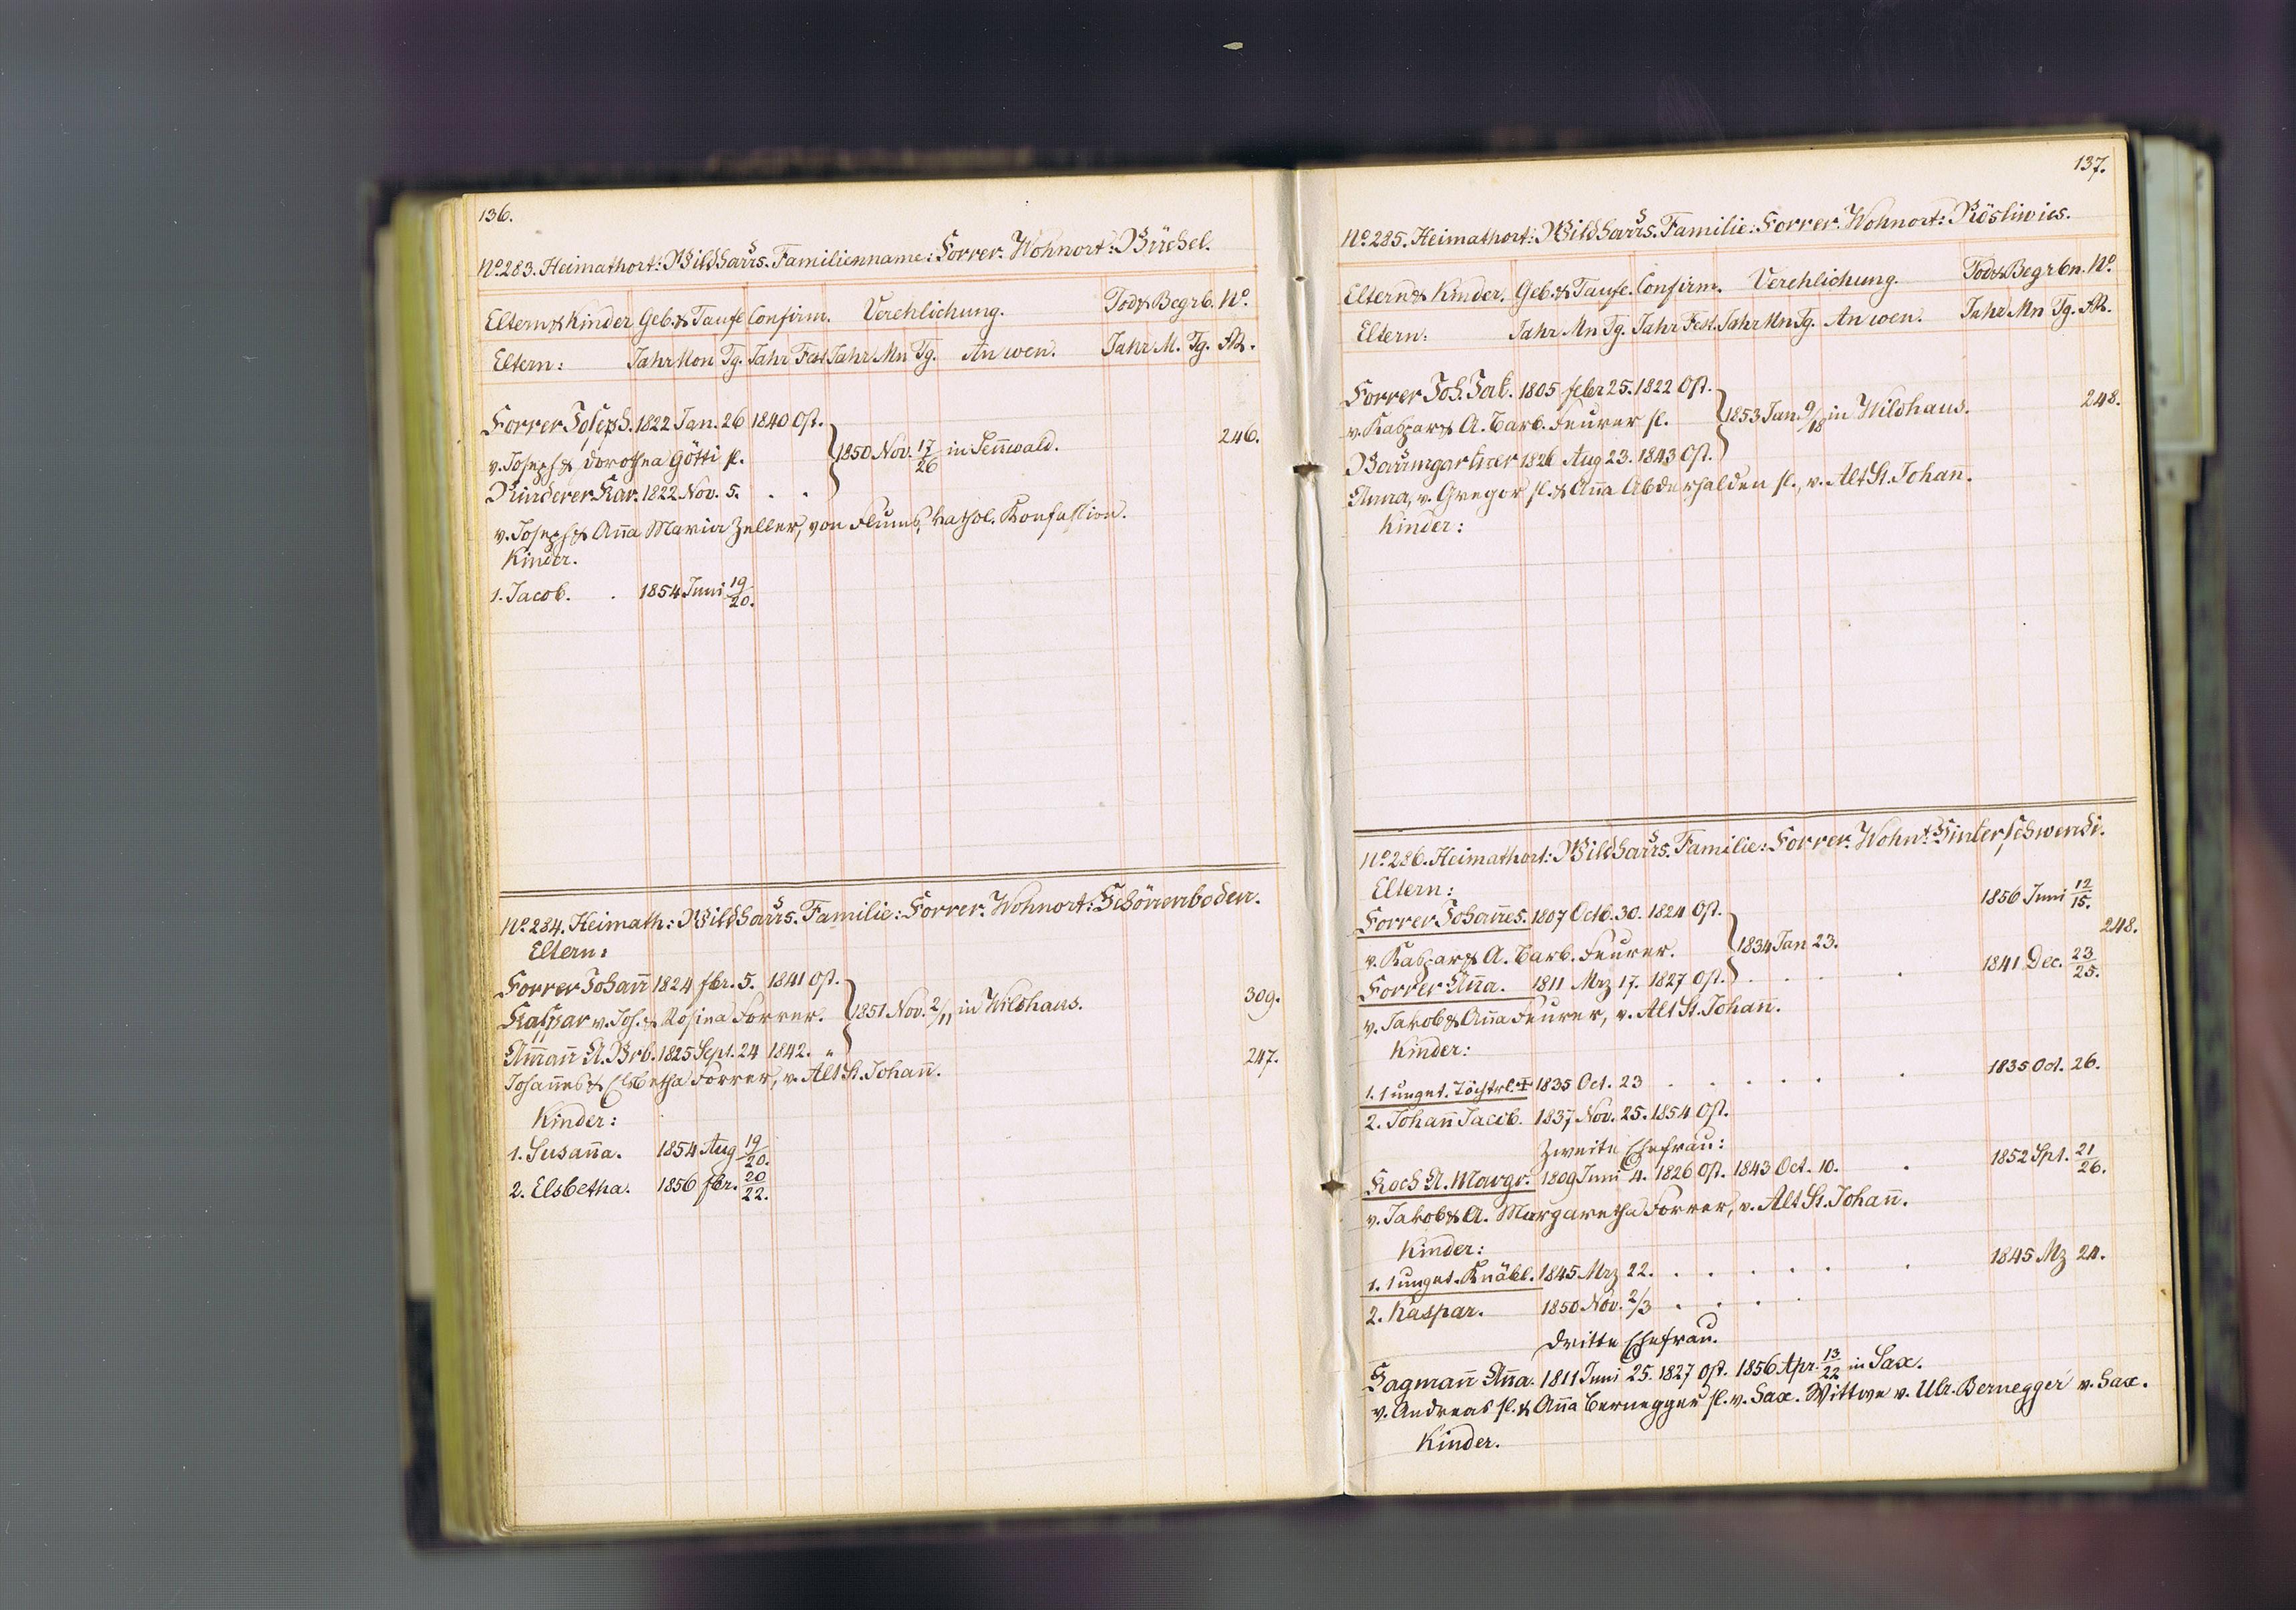 136.
No. 283. Heimathort: Wildhaus. Familienname: Forrer. Wohnort: Büchel.
Eltern & Kinder Geb. & Taufe Confirm. Verehlichung. Tod & Begrb. No.
Eltern: Jahr Mon Tg. Jahr Fest Jahr Mn Tg. An wen. Jahr M. Tg. Alt.
Forrer Joseph. 1822 Jan. 26 1840 Ost.
v. Joseph & Dorothea Götti sl. 1850 Nov. 17/26 in Sennwald. 246.
Kinderer Kar. 1822 Nov. 5. . .
v. Joseph & Aña Maria Zeller, von Flums, kathol. Konfession.
Kinder.
1. Jacob. . 1854 Juni 19/20.
No. 284. Heimath: Wildhaus. Familie: Forrer. Wohnort: Schönenboden.
Eltern:
Forrer Johañ 1824 fbr. 5. 1841 Ost.
Kaspar v. Joh. & Rosina Forrer. 1851 Nov. 2/11 in Wildhaus. 309.
Amañ A. Brb. 1825 Sept. 24 1842. "
Johannes & Elsbetha Forrer, v. Alt St. Johañ. 247.
Kinder:
1. Susaña. 1854 Aug 19/20.
2. Elsbetha. 1856 fbr. 20/22.
137.
No. 285. Heimathort: Wildhaus. Familie: Forrer. Wohnort: Rösliwies.
Eltern & Kinder. Geb. & Taufe. Confirm. Verehlichung. Tod & Begrbn. No.
Eltern. Jahr Mn Tg. Jahr Fest. Jahr Mn Tg. An wen. Jahr Mn Tg. Alt.
Forrer Joh. Jak. 1805 febr 25. 1822 Ost.
v. Kaspar & A. Barb. Feurer sl. 1853 Jan. 9/18 in Wildhaus. 248.
Baumgartner 1826 Aug 23. 1843 Ost.
Anna, v. Gregor sl. & Aña Abderhalden sl., v. Alt St. Johan.
Kinder:
No. 286. Heimathort: Wildhaus. Familie: Forrer. Wohnt: Hinterschwendi.
Eltern:
Forrer Johañes. 1807 Octb. 30. 1824 Ost. 1856 Juni 12/15.
v. Kaspar & A. Barb. Feurer. 1834 Jan 23. 248.
Forrer Aña. 1811 Mrz 17. 1827 Ost. . . . 1841 Dec. 23/25.
v. Jakob & Aña Feurer, v. Alt St. Johan.
Kinder:
1. 1 unget. Töchtrl. 1835 Oct. 23 . . . . . . 1835 Oct. 26.
2. Johañ Jacob. 1837 Nov. 25. 1854 Ost.
Zweite Ehefrau:
Koch A. Margr. 1809 Juni 4. 1826 Ost. 1843 Oct. 10. . 1852 Spt. 21/26.
v. Jakob & A. Margaretha Forrer, v. Alt St. Johañ.
Kinder:
1. 1 unget. Knäbl. 1845 Mrz 22. . . . . . . 1845 Mz 24.
2. Kaspar. 1850 Nov. 2/3 . . . .
Dritte Ehefrau.
Hagmañ Aña. 1811 Juni 25. 1827 Ost. 1856 Apr. 13/22 in Sax.
v. Andreas sl. & Aña Bernegger sl. v. Sax. Wittwe v. Ulr. Bernegger v. Sax.
Kinder.